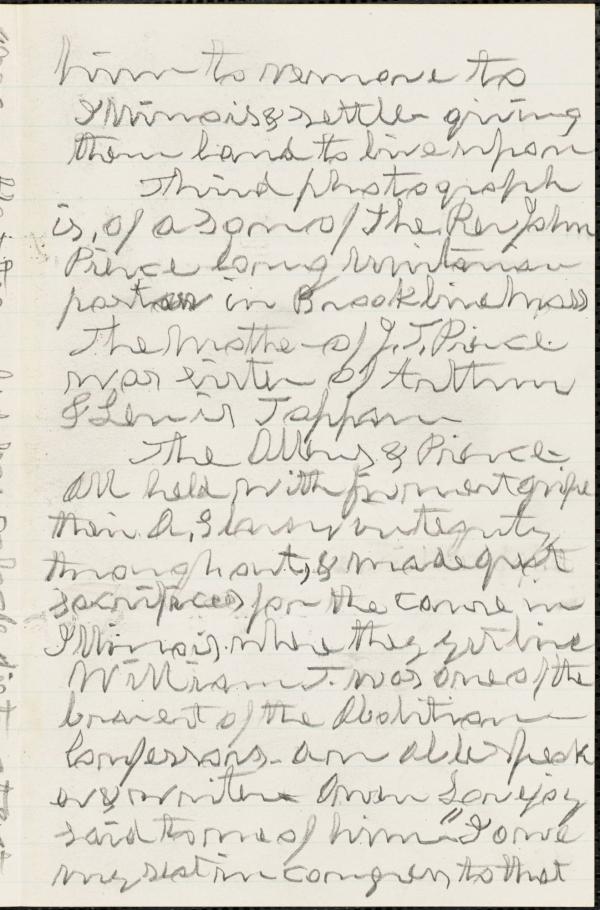 him to remove to
Illinois & settle giving
them land to live upon
Third photograph
is, of a son of the Rev John
Pierce long Unitarian
pastor in Brookline Mass
The Mother of J. T. Pierce
was sister of Arthur
& Lewis Tappan
The Allens & Pierce
All held with firmest gripe
their A, Slavery integrity
throughout, & made great
sacrifices for the cause in
Illinois. where they yet live
William T. was one of the
bravest of the Abolition
Confessors. an able speak
er & writer Owen Lovejoy
said to me of him "I owe
my seat in congress, to that